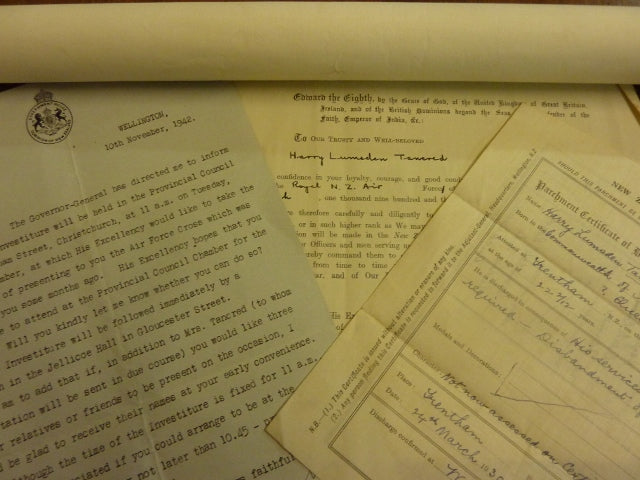 WELLINGTON,
10th November, 1942.
The Governor-General has directed me to inform
investiture will be held in the Provincial Council
Street, Christchurch, at 11 a.m. on Tuesday,
at which His Excellency would like to take the
of presenting to you the Air Force Cross which was
you some months ago. His Excellency hopes that you
to attend at the Provincial Council Chamber for the
Will you kindly let me know whether you can do so?
Investiture will be followed immediately by a
in the Jellicoe Hall in Gloucester Street.
am to add that if, in addition to Mrs. Tancred (to whom
tation will be sent in due course) you would like three
relatives or friends to be present on the occasion, I
be glad to receive their names at your early convenience.
though the time of the Investiture is fixed for 11 a.m.
ociated if you could arrange to be at the
not later than 10.45 -
faithful
Edward the Eighth, by the Grace of God, of the United Kingdom of Great Britain,
Ireland, and of the British Dominions beyond the Seas
Faith, Emperor of India, &c.:
To OUR TRUSTY AND WELL-BELOVED
Harry Lumsden Tancred
confidence in your loyalty, courage, and good
Royal N.Z. Air Force
, one thousand nine hundred and
therefore carefully and diligently to
or in such higher rank as We may
tion will be made in the New
Officers and men serving
hereby command them to
from time to time
and of Our
SHOULD THIS PARCHMENT
NEW
Parchment Certificate of
Name Harry Lumsden
Born in
Commonwealth of
Trentham
22
He is discharged in consequence of His services
required - Disbandment
Medals and Decorations:
Character Not now assessed on
Place: Trentham
Date: 24th March
Discharge confirmed at
N.B.—(1.) This Certificate is issued without alteration or erasure of any
(2.) Any person finding this Certificate is requested to forward it to the Adjutant-General, Headquarters, Wellington, N.Z.